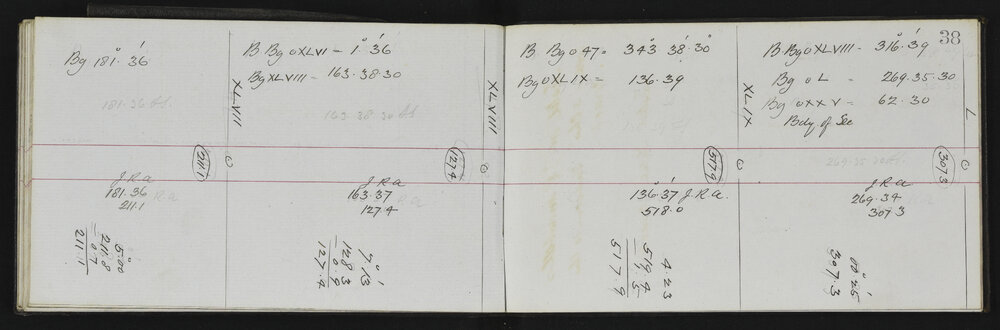 38
Bg 181° 36'
181·36
XLVII
2111
J.R.A
181.36
R.A
211.1
5°00
211.8
0.7
211.1
B Bg o XLVI = 1° 36'
Bg XLVIII = 163.38.30
163.38.30
XLVIII
1274
J.R.A
163.37
127.4
7° 13'
128.3
0.9
127.4
B. Bg o 47 = 343° 38' 30
Bg o XLIX = 136.39
XLIX
5179
136°37' J.R.A.
518.0
4.23
519.4
1.5
517.9
B Bg o XLVIII = 316° 39'
Bg o L = 269.35.30
Bg o XXV = 62.30
Bdy of Sec
L
269.35.30
3073
J.R.A
269.34
307.3
00°25'
307.3